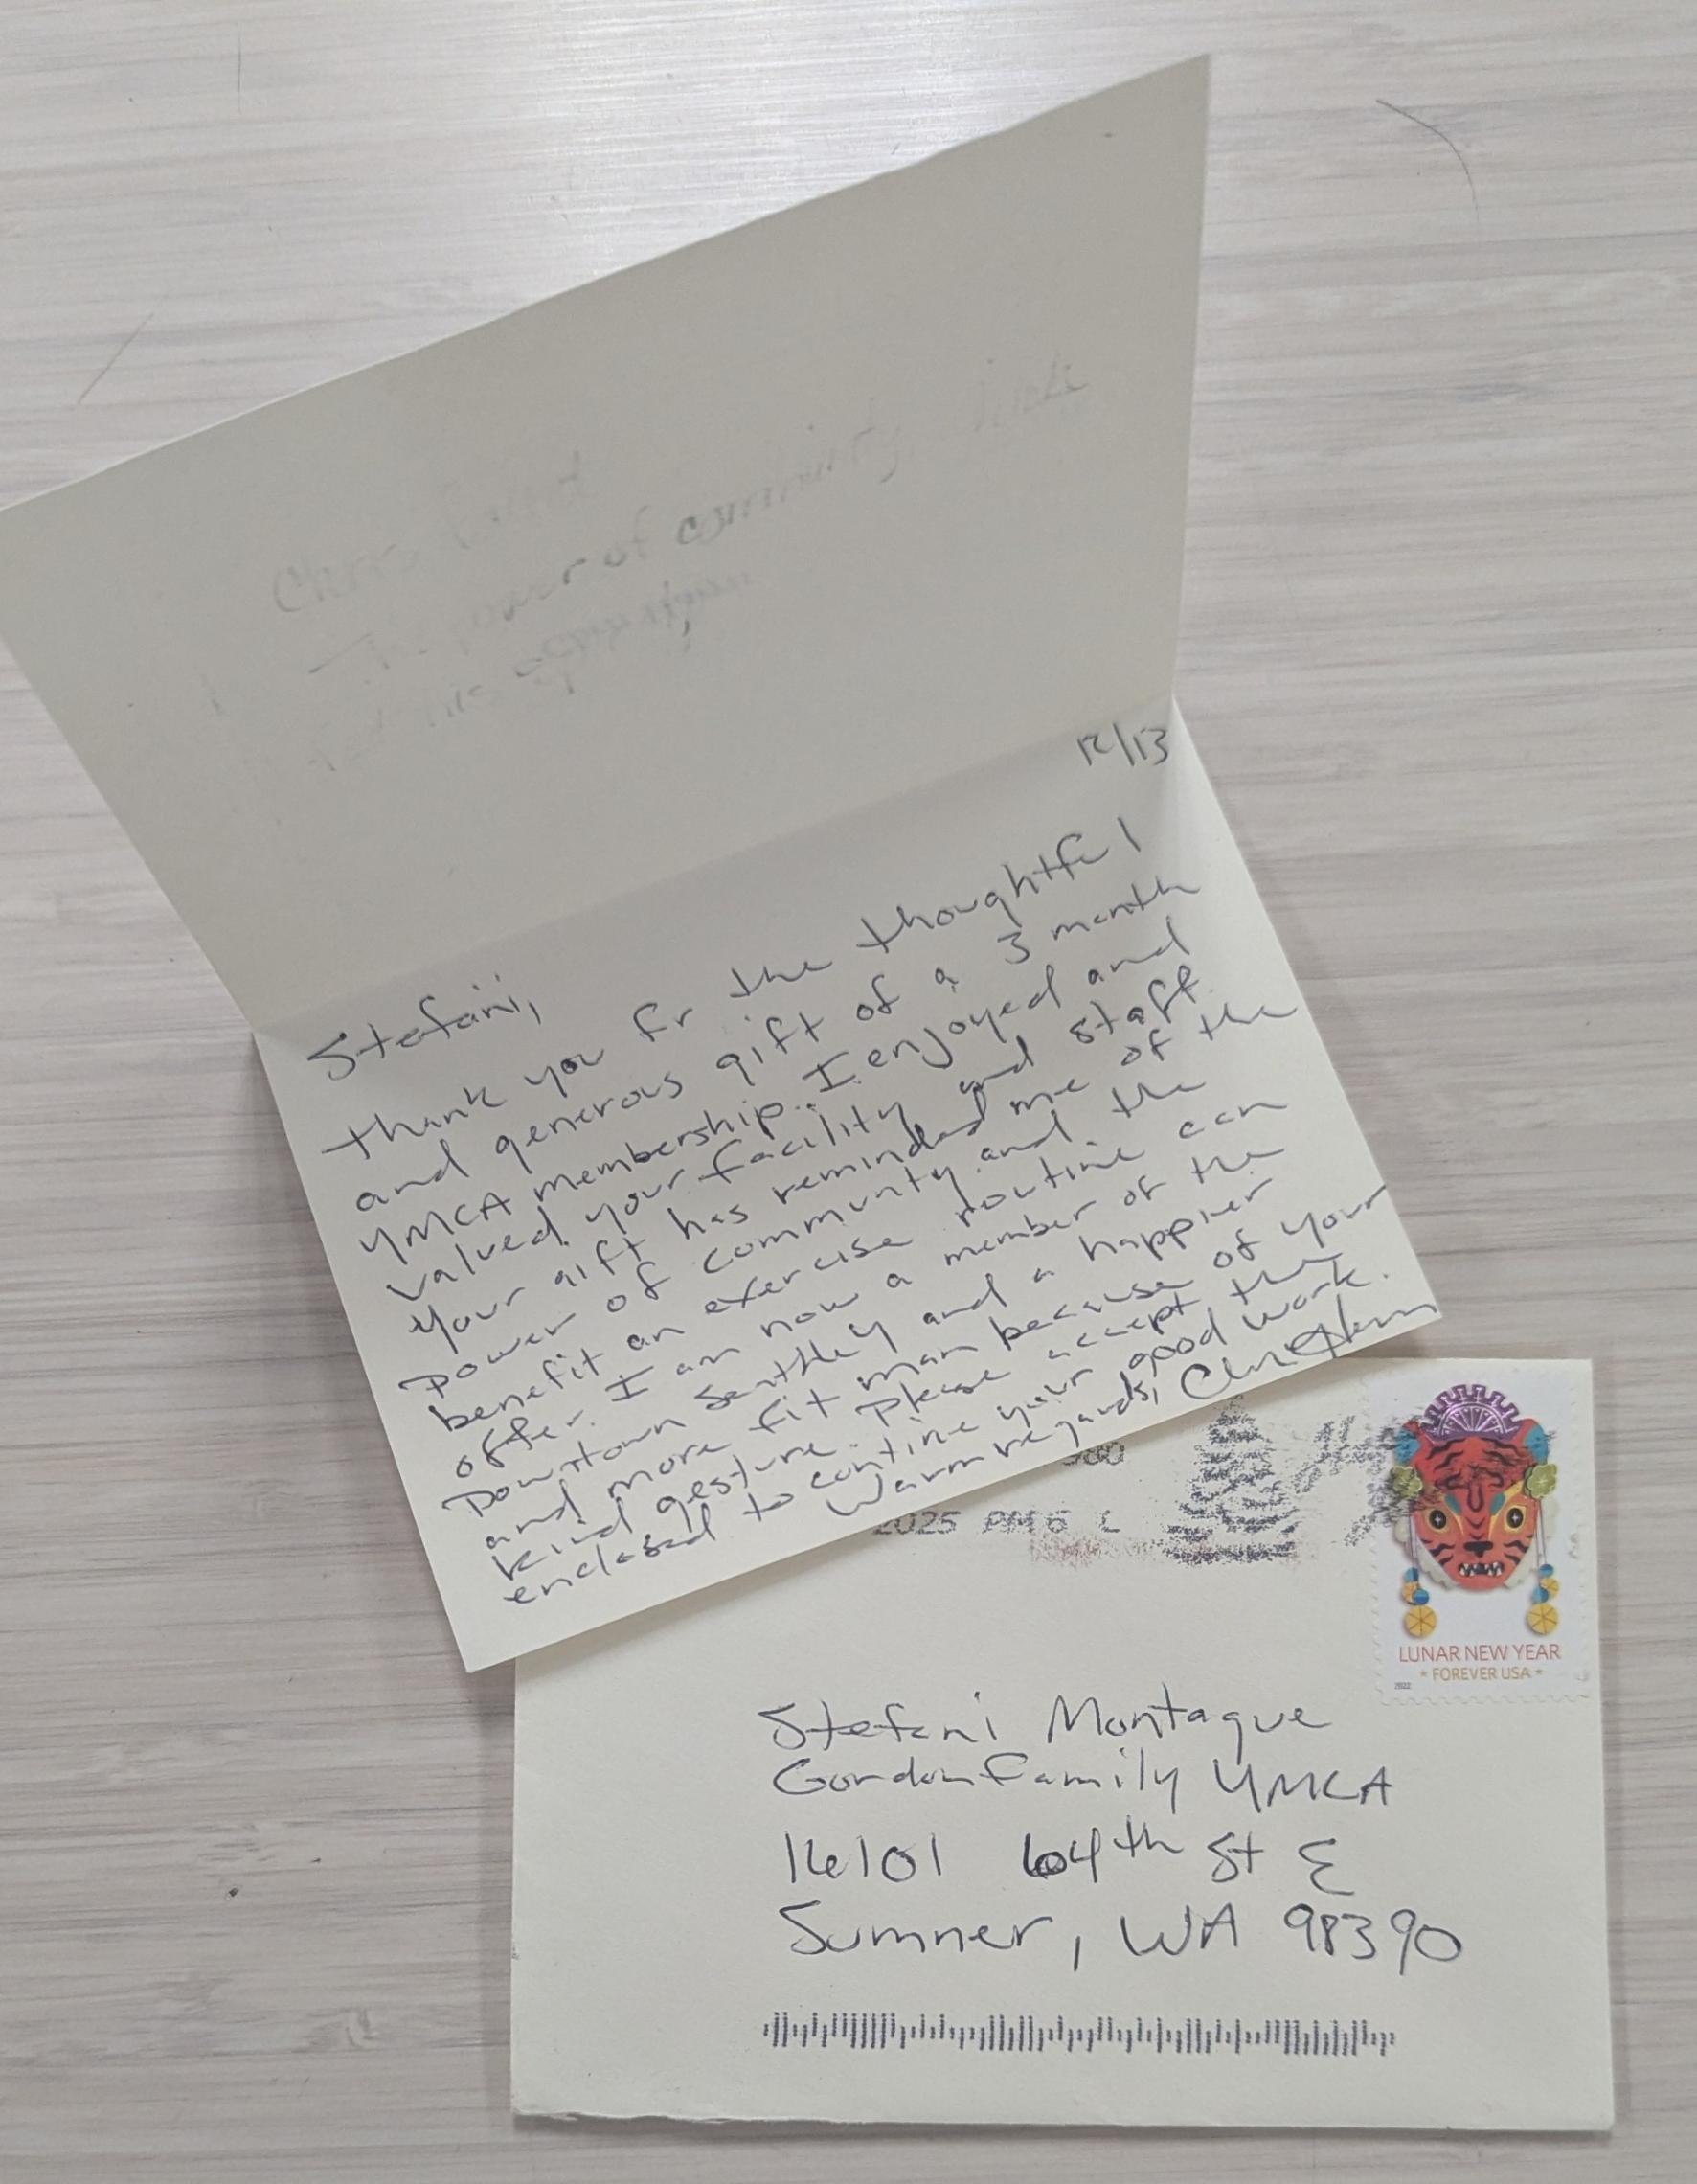 of community
12/13
Stefani,
Thank you fr the thoughtful
and generous gift of a 3 month
YMCA membership. I enjoyed and
valued your facility and staff.
Your gift has reminded me of the
power of community and the
benefit an exercise routine can
offer. I am now a member of the
Downtown Seattle Y and a happier
and more fit man because of your
kind gesture. Please accept the
enclosed to contine your good work.
Warm regards,
2025 PM 6 L
LUNAR NEW YEAR
* FOREVER USA *
2022
Stefani Montague
Gordon Family YMCA
16101 64th St E
Sumner, WA 98390